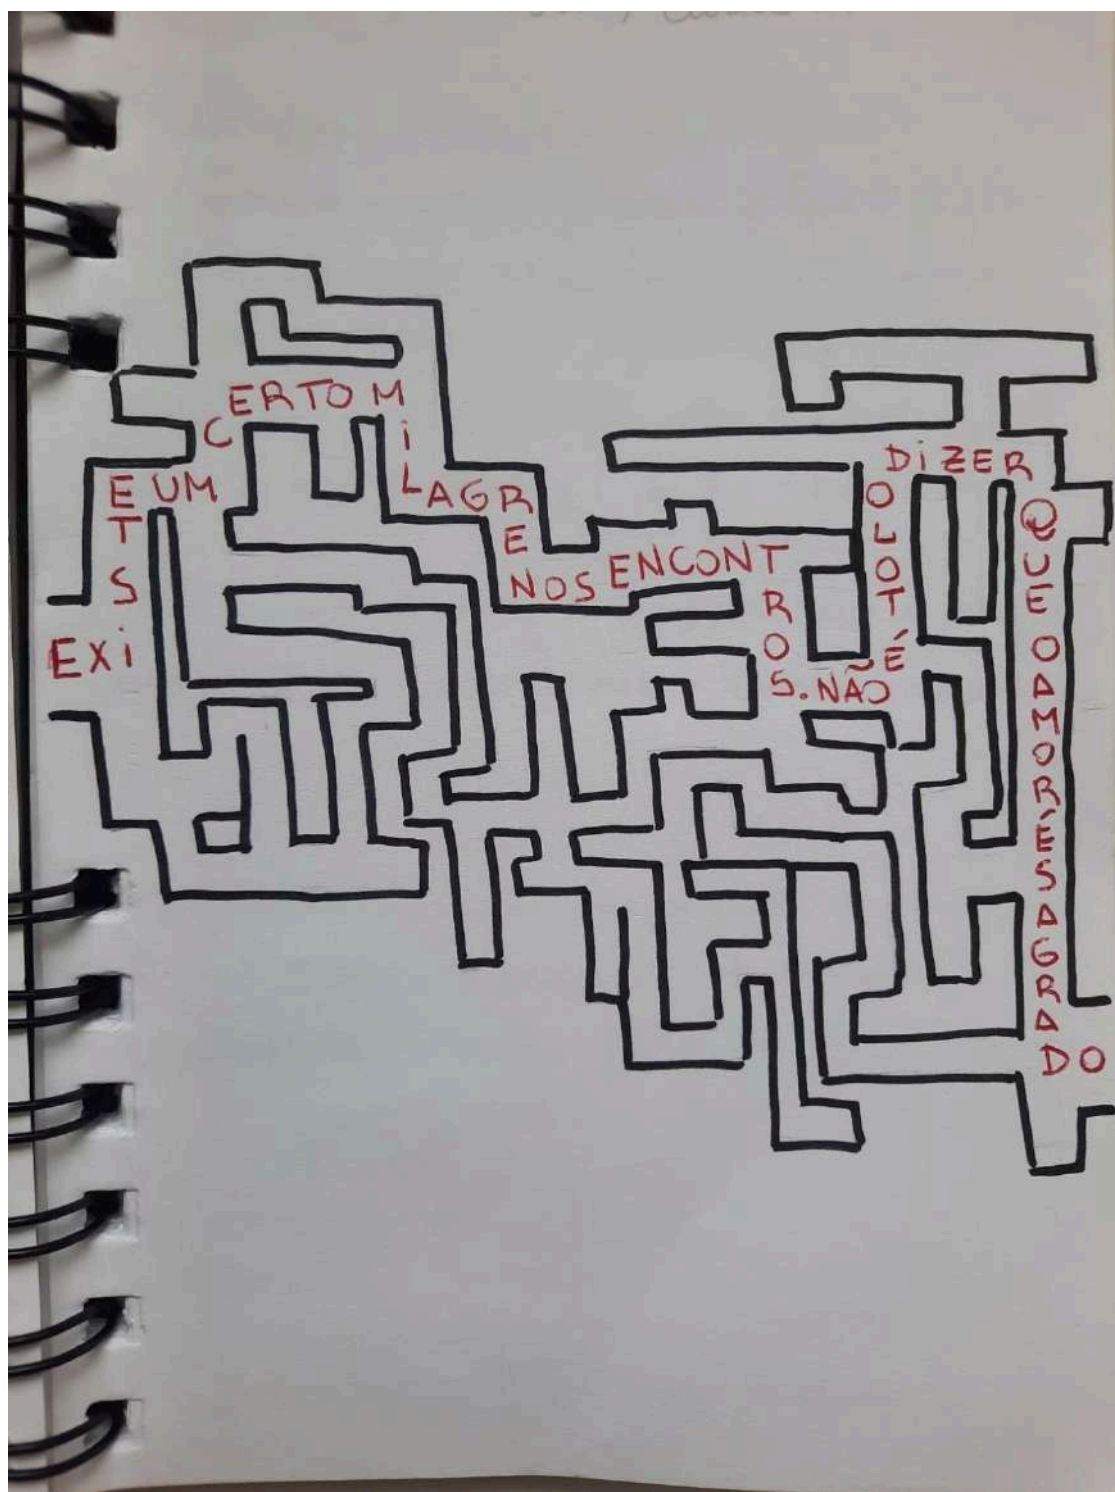 EXiSTE UM
CERTO MiLAGRE
NOS ENCONTROS. NÃO
É TOLO DiZER
QUE O AMOR É SAGRADO